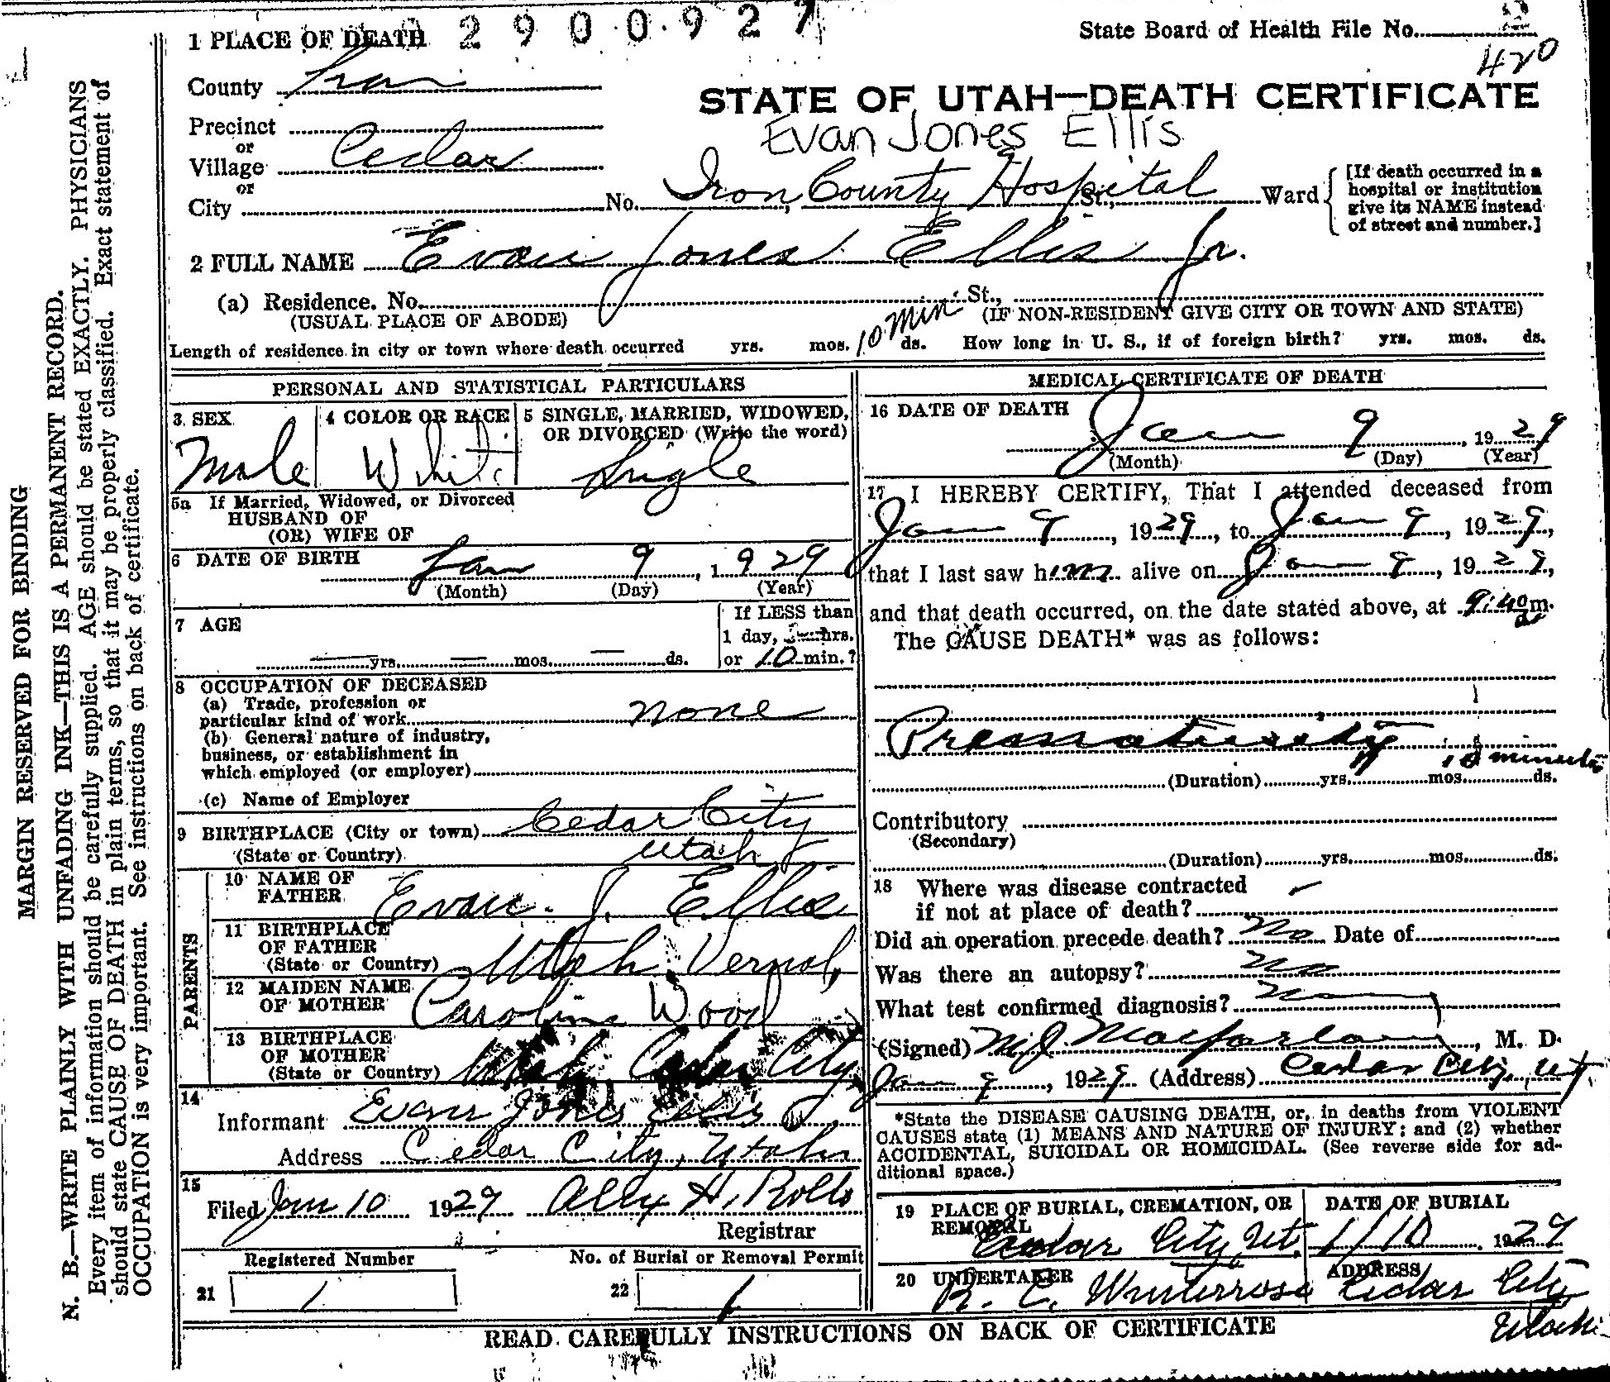 1 PLACE OF DEATH 2 9 0 0 9 2 7
State Board of Health File No. 2
420
County Iron
STATE OF UTAH—DEATH CERTIFICATE
Precinct
or
Evan Jones Ellis
Village Cedar
or
City No. Iron County Hospital St., Ward
[If death occurred in a
hospital or institution
give its NAME instead
of street and number.]
2 FULL NAME Evan Jones Ellis Jr.
(a) Residence. No. St.,
(USUAL PLACE OF ABODE) (IF NON-RESIDENT GIVE CITY OR TOWN AND STATE)
Length of residence in city or town where death occurred yrs. mos. 10 Min. ds. How long in U. S., if of foreign birth? yrs. mos. ds.
PERSONAL AND STATISTICAL PARTICULARS
3 SEX 4 COLOR OR RACE 5 SINGLE, MARRIED, WIDOWED,
OR DIVORCED (Write the word)
Male White Single
5a If Married, Widowed, or Divorced
HUSBAND OF
(OR) WIFE OF
6 DATE OF BIRTH Jan 9, 1929
(Month) (Day) (Year)
7 AGE If LESS than
1 day, hrs.
yrs. mos. ds. or 10 min.?
8 OCCUPATION OF DECEASED
(a) Trade, profession or
particular kind of work none
(b) General nature of industry,
business, or establishment in
which employed (or employer)
(c) Name of Employer
9 BIRTHPLACE (City or town) Cedar City
(State or Country) Utah
PARENTS
10 NAME OF
FATHER Evan J. Ellis
11 BIRTHPLACE
OF FATHER
(State or Country) Utah, Vernal,
12 MAIDEN NAME
OF MOTHER Caroline Wood
13 BIRTHPLACE
OF MOTHER
(State or Country) Utah, Cedar City,
14
Informant Evan Jones Ellis
Address Cedar City, Utah
15
Filed Jan 10 1929 H. Rollo
Registrar
Registered Number No. of Burial or Removal Permit
21 1 22 1
MEDICAL CERTIFICATE OF DEATH
16 DATE OF DEATH
Jan 9, 1929
(Month) (Day) (Year)
17 I HEREBY CERTIFY, That I attended deceased from
Jan 9, 1929, to Jan 9, 1929,
that I last saw him alive on Jan 9, 1929,
and that death occurred, on the date stated above, at 9:40 a m.
The CAUSE DEATH* was as follows:
Prematurity
10 minutes
(Duration) yrs. mos. ds.
Contributory
(Secondary)
(Duration) yrs. mos. ds.
18 Where was disease contracted
if not at place of death?
Did an operation precede death? No Date of
Was there an autopsy? No
What test confirmed diagnosis?
(Signed) M J Macfarlane, M. D.
Jan 9, 1929 (Address) Cedar City, Ut.
*State the DISEASE CAUSING DEATH, or, in deaths from VIOLENT
CAUSES state (1) MEANS AND NATURE OF INJURY; and (2) whether
ACCIDENTAL, SUICIDAL OR HOMICIDAL. (See reverse side for ad-
ditional space.)
19 PLACE OF BURIAL, CREMATION, OR
REMOVAL
Cedar City Ut.
DATE OF BURIAL
1/10 1929
20 UNDERTAKER
R. C. Winterrose
ADDRESS
Cedar City
Utah
READ CAREFULLY INSTRUCTIONS ON BACK OF CERTIFICATE
MARGIN RESERVED FOR BINDING
N. B.—WRITE PLAINLY WITH UNFADING INK—THIS IS A PERMANENT RECORD.
Every item of information should be carefully supplied. AGE should be stated EXACTLY. PHYSICIANS
should state CAUSE OF DEATH in plain terms, so that it may be properly classified. Exact statement of
OCCUPATION is very important. See instructions on back of certificate.